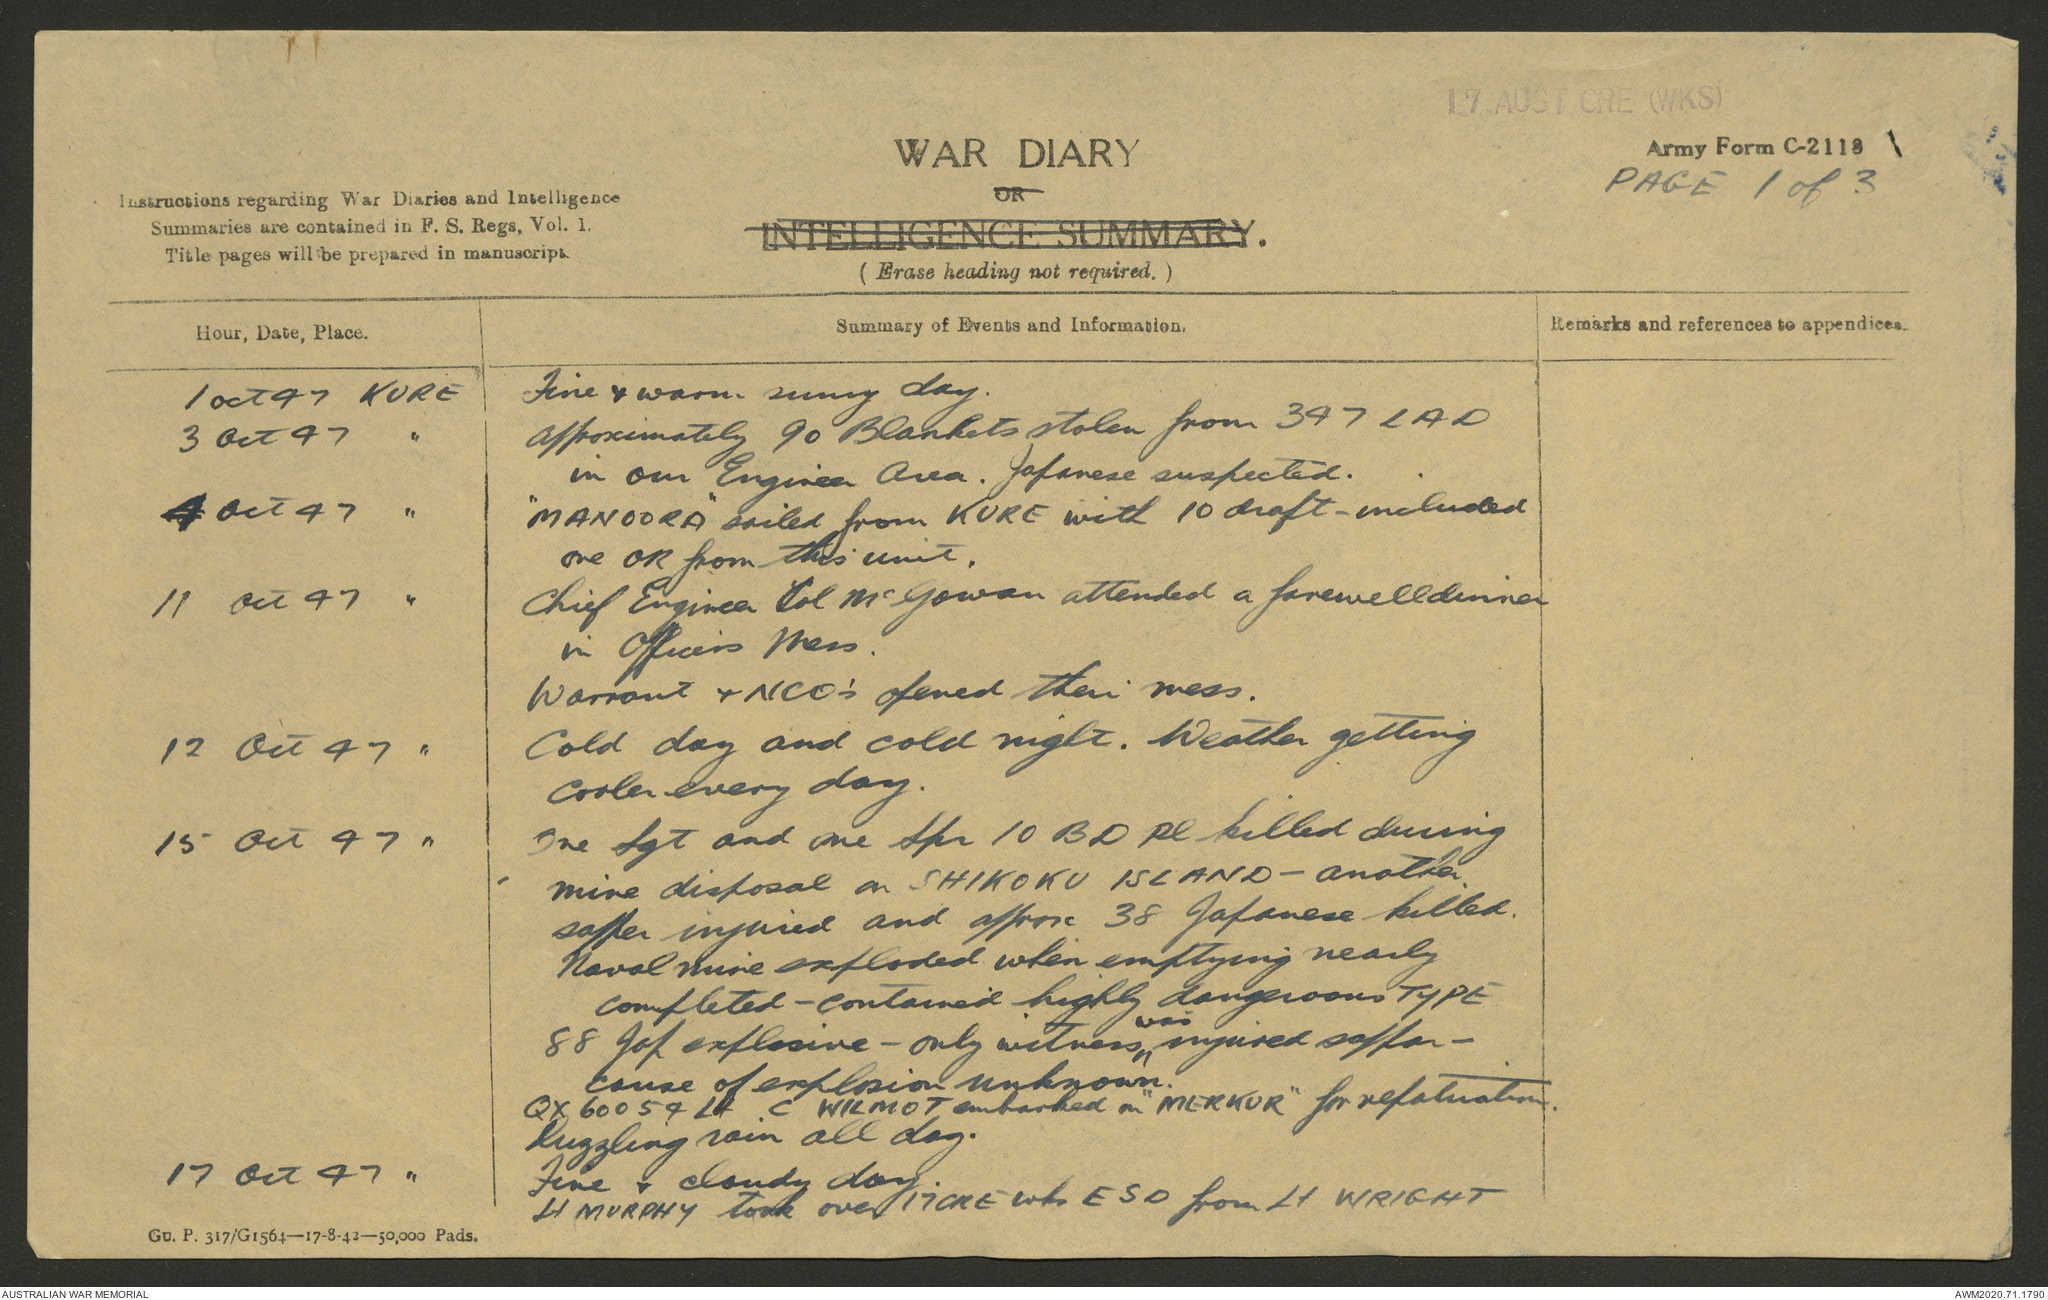 17 AUST CRE (WKS)
WAR DIARY
Army Form C-2118
\
OR
PAGE 1 of 3
Instructions regarding War Diaries and Intelligence
Summaries are contained in F. S. Regs, Vol. 1.
Title pages will be prepared in manuscript.
INTELLIGENCE SUMMARY.
( Erase heading not required. )
Hour, Date, Place.
Summary of Events and Information.
Remarks and references to appendices.
1 Oct 47 KURE Fine & warm sunny day.
3 Oct 47 " Approximately 90 Blankets stolen from 347 LAD
in our Engineer Area. Japanese suspected.
4 Oct 47 " "MANOORA" sailed from KURE with 10 draft - included
one OR from this unit.
11 Oct 47 " Chief Engineer Col McGowan attended a farewell dinner
in Officers Mess.
Warrant & NCO's opened their mess.
12 Oct 47 " Cold day and cold night. Weather getting
cooler every day.
15 Oct 47 " One Sgt and one Spr 10 BD Pl killed during
mine disposal on SHIKOKU ISLAND - another
sapper injured and approx 38 Japanese killed.
Naval mine exploded when emptying nearly
completed - contained highly dangerous TYPE
88 Jap explosive - only witness was injured sapper -
cause of explosion unknown.
QX60054 Lt C WILMOT embarked on "MERKUR" for repatriation.
Drizzling rain all day.
17 Oct 47 " Fine & cloudy day.
Lt MURPHY took over 17 CRE wks ESD from Lt WRIGHT
Gu. P. 317/G1564—17-8-42—50,000 Pads.
AUSTRALIAN WAR MEMORIAL
AWM2020.71.1790